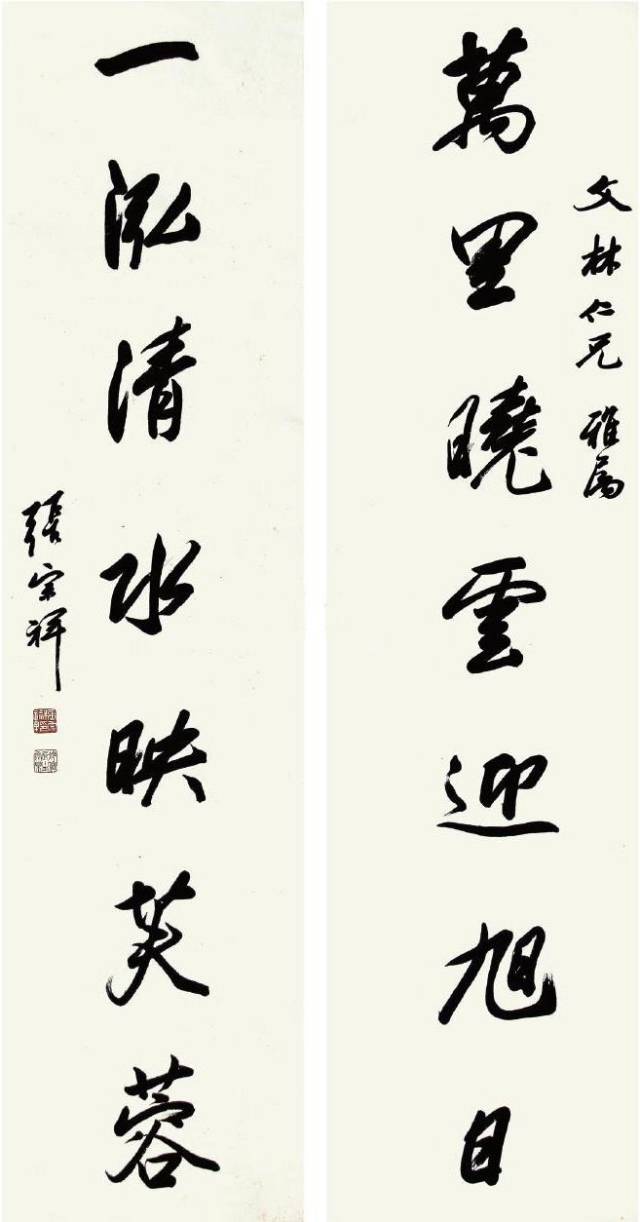 文林仁兄雅属
萬里曉雲迎旭日
一泓清水映芙蓉
張宗祥